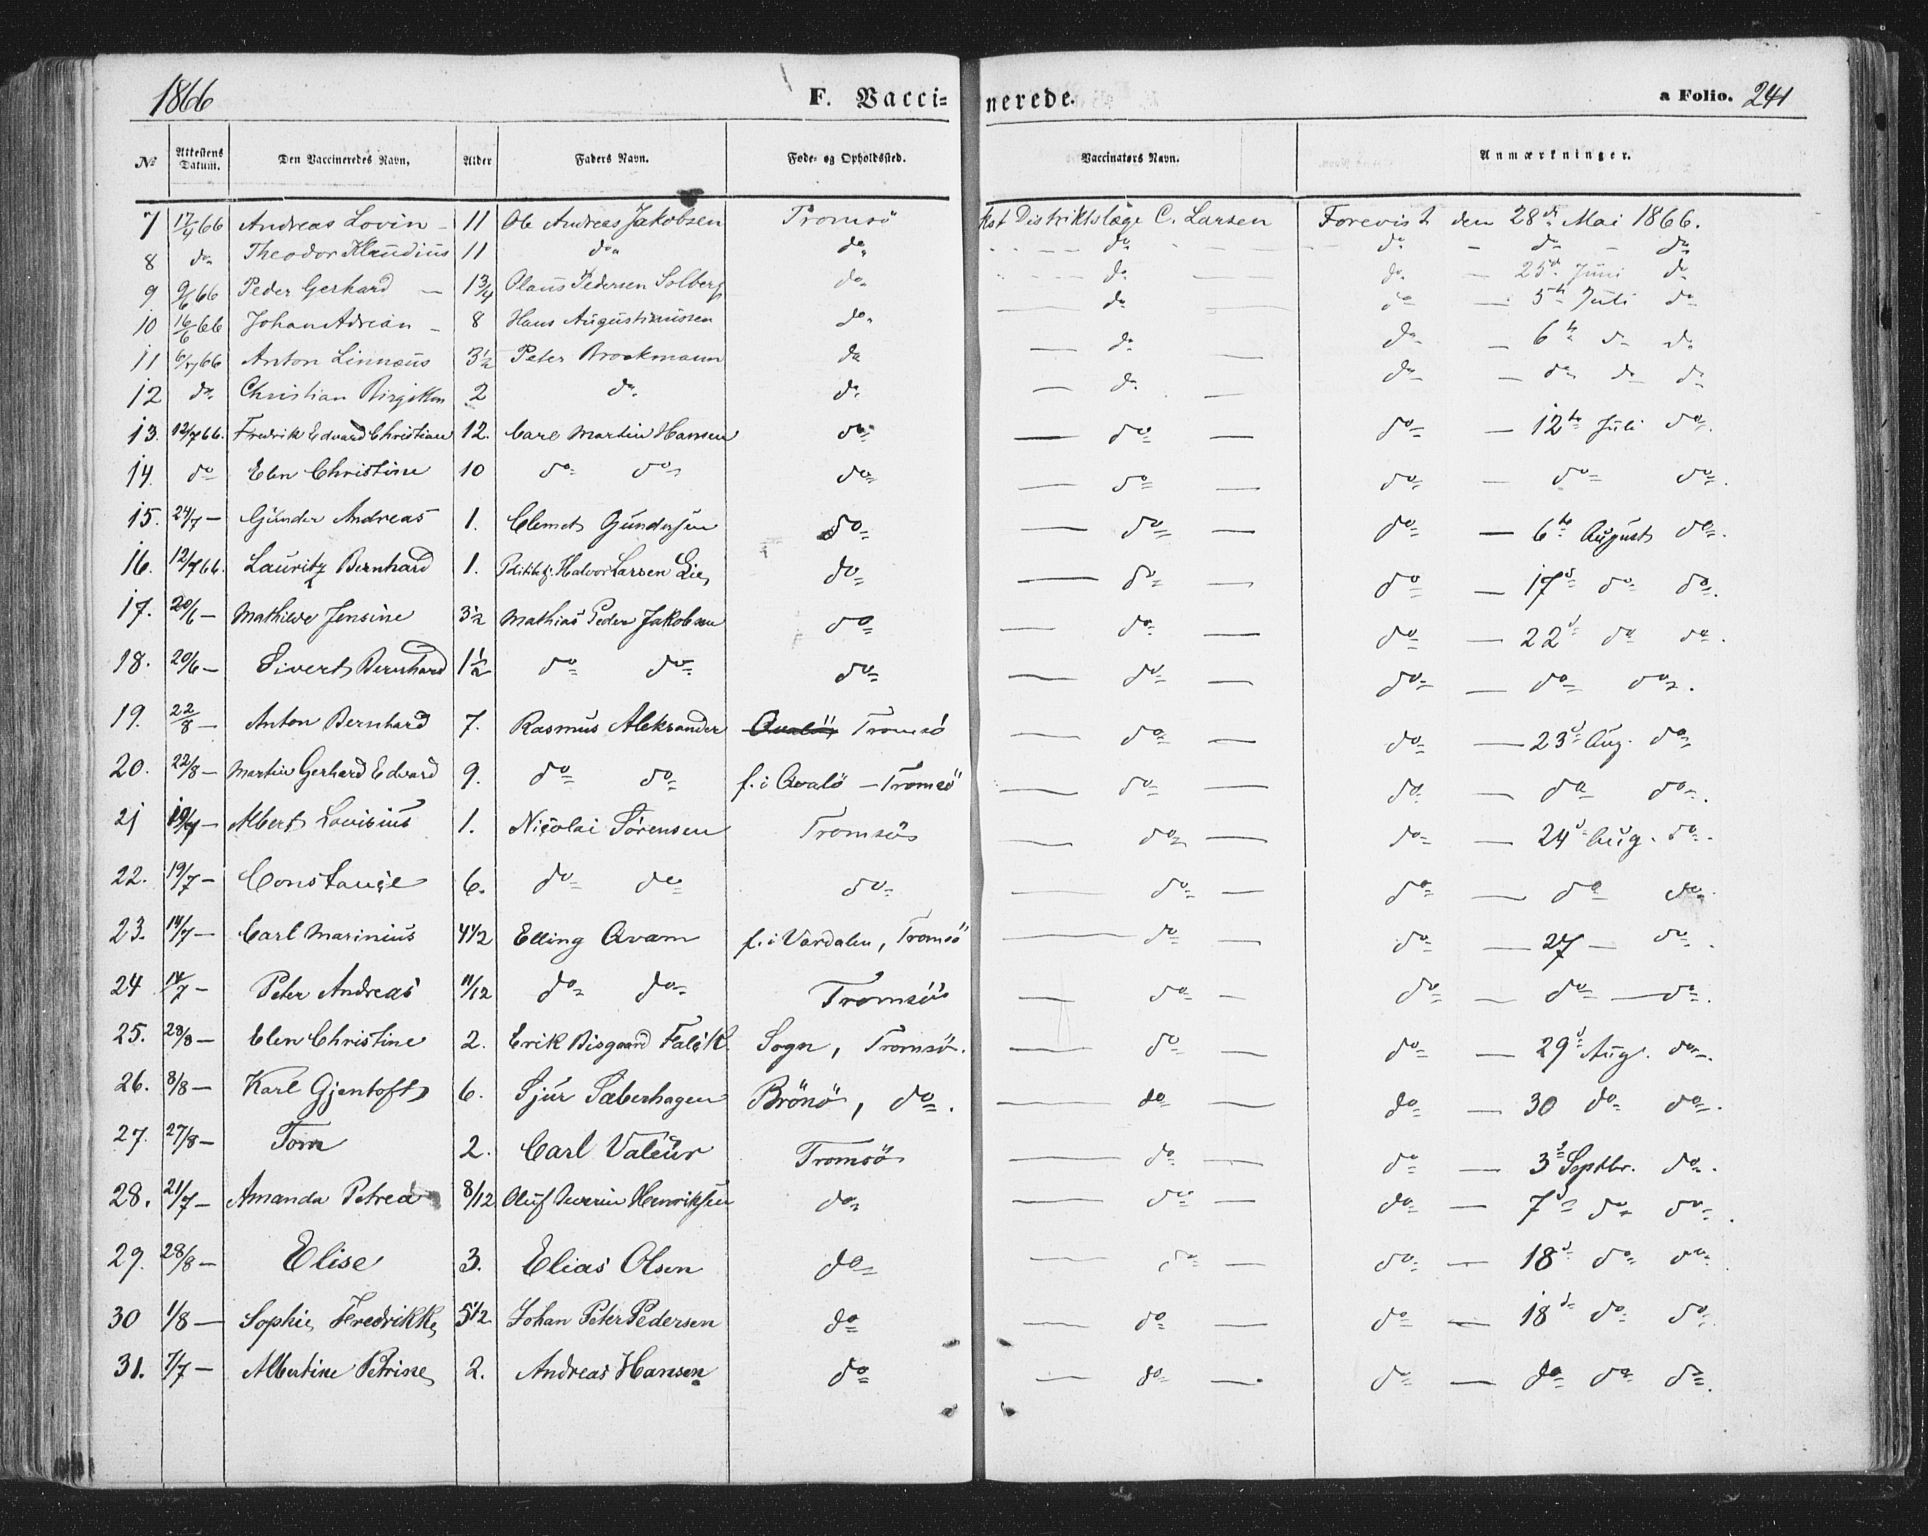 1866 F. Vacci- nerede. a Folio. 241
№ Attestens Datum. Den Vaccineredes Navn. Alder Faders Navn. Føde- og Opholdssted. Vaccinators Navn. Anmærkninger.
7 17/4 66 Andreas Lovin - 11 Ole Andreas Jakobsen Tromsö kst Distriktslæge C. Larsen Forevist den 28de Mai 1866.
8 do Theodor Klaudius 11 do do do do - do - do
9 9/6 66 Peder Gerhard - 1 3/4 Olaus Pedersen Solberg do do do - 25de Juni do
10 16/6 66 Johan Adrian - 8 Hans Augustinussen do do do - 5te Juli do
11 6/7 66 Anton Linnæus 3 1/2 Peter Brockmann do do do - 6te do do
12 do Christian 2 do do do do - do do do
13. 12/7 66. Fredrik Edvard Christian 12. Carl Martin Hansen do do do - 12te Juli do.
14. do Elen Christine 10 do do do do do - do do.
15. 24/7 - Gunder Andreas 1. Clemet Gundersen do do do - 6te August do.
16. 12/7 66. Lauritz Bernhard 1. Halvor Larsen Lie do do do - 17de do do.
17. 20/6 - Mathilde Jensine 3 1/2 Mathias Peder Jakobsen do do do - 22de do do.
18. 20/6 - Sivert Bernhard 1 1/2 do do do do do - do do.
19. 22/8 - Anton Bernhard 7. Rasmus Aleksander Tromsö do do - 23de Aug. do
20. 22/8 - Martin Gerhard Edvard 9. do do f. i Qvalö - Tromsö do do - do do.
21 19/7 - Albert Lovisius 1. Nicolai Sörensen Tromsö do do - 24de Aug. do.
22. 19/7 - Constance 6. do do do do do - do do.
23. 14/7 - Carl Marinius 4 1/2 Elling Qvam f. i Værdalen, Tromsö do do - 27 - do.
24 14/7 - Peter Andreas 11/12 do do Tromsö do do - do - do.
25. 28/8 - Elen Christine 2. Erik Bisgaard Falck Sogn, Tromsö. do do - 29de Aug. do.
26. 8/8 - Karl Gjentoft 6. Sjur Sæberhagen Brönö, do. do do - 30 do do.
27. 27/8 - Tom 2. Carl Valeur Tromsö do do - 3de Septbr. do.
28. 21/7 - Amanda Petrea 8/12 Oluf Henriksen do do do - 7de do do.
29. 28/8 - Elise 3. Elias Olsen do do do - 18de do do
30 1/8 - Sophie Fredrikke 5 1/2 Johan Peter Pedersen do do do - 18de do do.
31. 7/7 - Albertine Petrine 2. Andreas Hansen do do do - do do do.